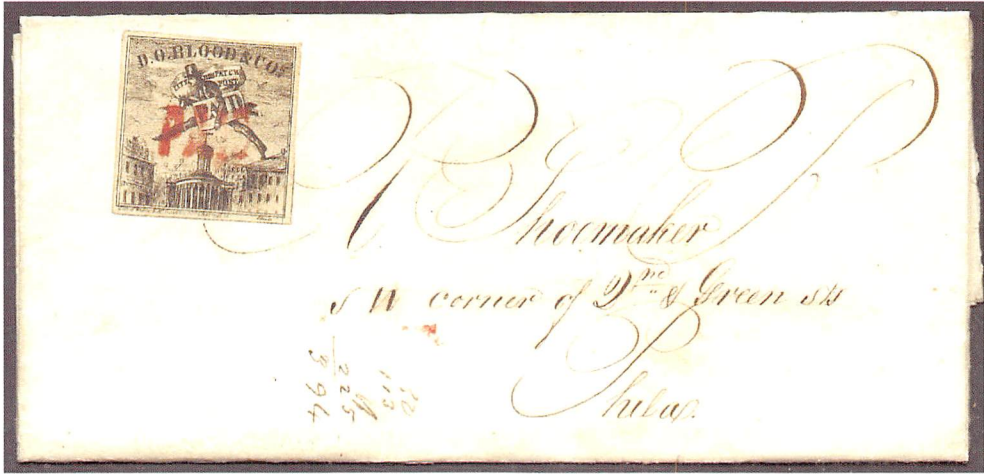 D.O. BLOOD & CO'S
CITY DESPATCH
POST
PAID
PAID
R Shoemaker
S W corner of 2nd & Green sts
Phila.